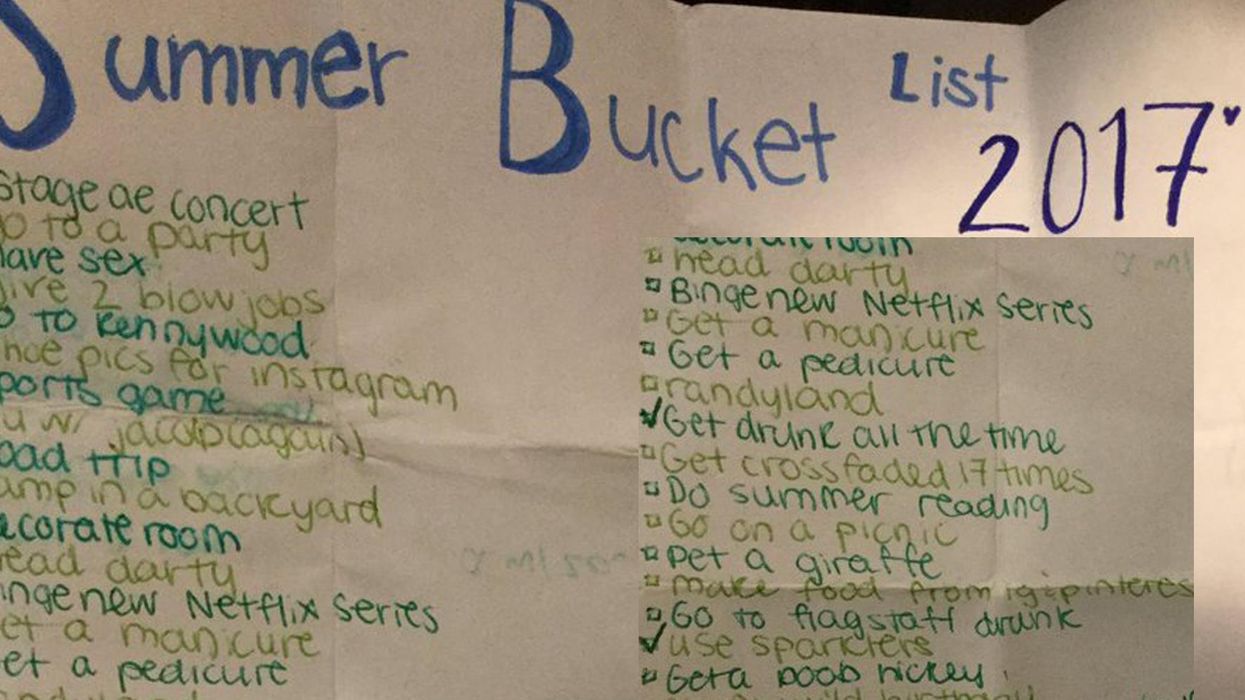 Summer Bucket List
2017
Stage ae concert
to a party
have sex
give 2 blowjobs
to Kennywood
pics for instagram
sports game
w/ jacob (again)
road trip
camp in a backyard
decorate room
head darty
Binge new Netflix series
Get a manicure
Get a pedicure
decorate room
head darty
Binge new Netflix series
Get a manicure
Get a pedicure
randyland
Get drunk all the time
Get crossfaded 17 times
Do summer reading
Go on a picnic
pet a giraffe
make food from ig/pinteres
Go to flagstaff drunk
use sparklers
Get a boob hickey